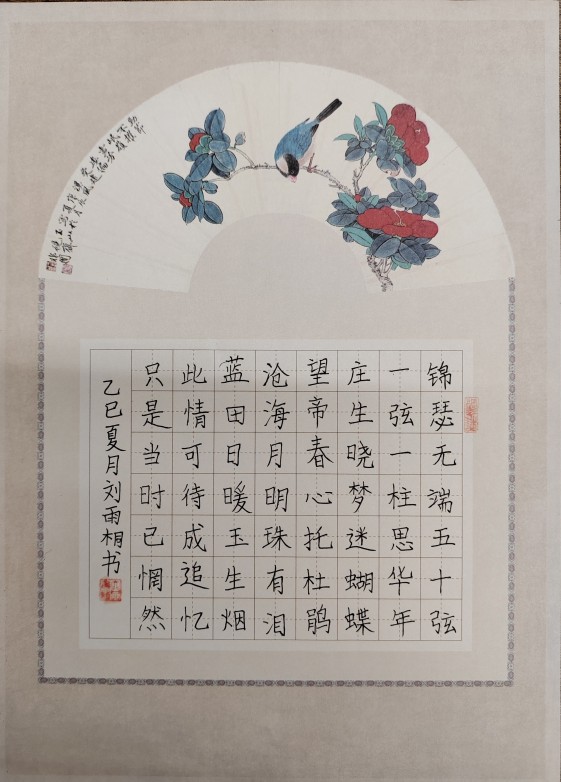 锦瑟无端五十弦
一弦一柱思华年
庄生晓梦迷蝴蝶
望帝春心托杜鹃
沧海月明珠有泪
蓝田日暖玉生烟
此情可待成追忆
只是当时已惘然
乙巳夏月刘雨桐书